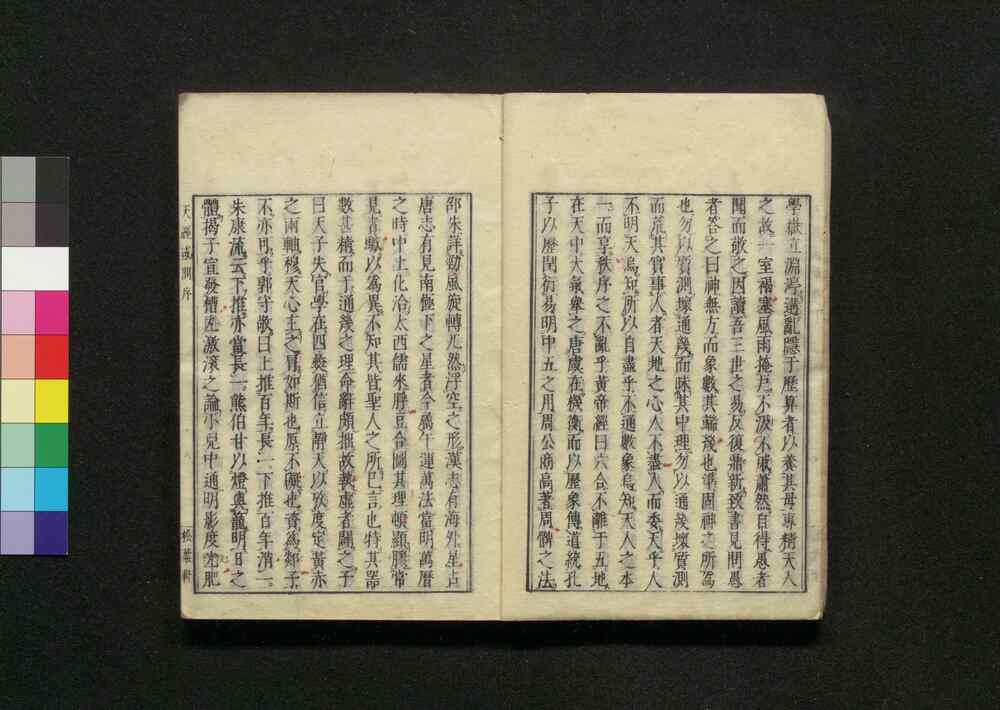 學嶽立淵渟遘亂隱于歷算者以養其母專精天人
之故一室褐塞風雨掩戶不汲不戚蕭然自待愚者
聞而敬之因讀吾三世之易反復鼎新致書見問愚
者答之曰神無方而象數其端幾也準固神之所為
也勿以質測壞通幾而昧其中理勿以通幾壞質測
而荒其實事人者天地之心人不盡人而委天乎人
不明天烏知所以自盡乎不通數象烏知天人之本
一而享秩序之不亂乎黃帝經曰六合不離于五地
在天中大氣舉之唐虞在璣衡而以歷象傳道統孔
子以歷閏衍易明中五之用周公商高著周髀之法
邵朱詳勁風旋轉兀然浮空之形漢志有海外星占
唐志有見南極下之星者今屬午運萬法當明萬曆
之時中土化洽太西儒來脬豆合圖其理頓顯膠常
見者駴以為異不知其皆聖人之所已言也特其器
數甚精而于通幾之理命辭頗拙故執虛者闢之子
曰天子失官學在四夷猶信立靜天以攷度定黃赤
之兩軸穆天心主之冒如斯也原不礙也資為郯子
不亦可乎郭守敬曰上推百年長一下推百年消一
朱康流云下推亦當長一熊伯甘以燈輿籠明日之
體揭子宣發槽丸激滾之論小兒中通明影度光肥
天經或問序
松葉軒